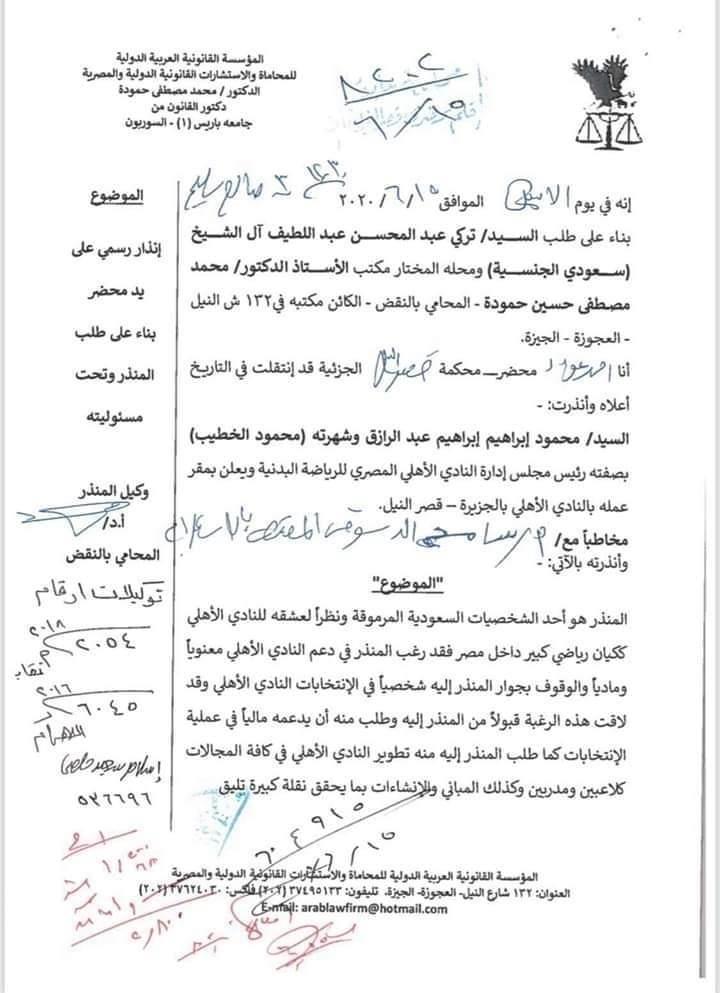 المؤسسة القانونية العربية الدولية
للمحاماة والاستشارات القانونية الدولية والمصرية
الدكتور / محمد مصطفى حمودة
دكتور القانون من
جامعه باريس (١) - السوربون
إنه في يوم الاثنين الموافق ١٥/٦/٢٠٢٠
بناء على طلب السيد/ تركي عبد المحسن عبد اللطيف آل الشيخ
(سعودي الجنسية) ومحله المختار مكتب الأستاذ الدكتور/ محمد
مصطفى حسين حمودة - المحامي بالنقض - الكائن مكتبه في١٣٢ ش النيل
- العجوزة - الجيزة.
أنا محضر محكمة الجزئية قد إنتقلت في التاريخ
أعلاه وأنذرت: -
السيد/ محمود إبراهيم إبراهيم عبد الرازق وشهرته (محمود الخطيب)
بصفته رئيس مجلس إدارة النادي الأهلي المصري للرياضة البدنية ويعلن بمقر
عمله بالنادي الأهلي بالجزيرة – قصر النيل.
مخاطباً مع/
وأنذرته بالآتي: -
"الموضوع"
المنذر هو أحد الشخصيات السعودية المرموقة ونظراً لعشقه للنادي الأهلي
ككيان رياضي كبير داخل مصر فقد رغب المنذر في دعم النادي الأهلي معنوياً
ومادياً والوقوف بجوار المنذر إليه شخصياً في الإنتخابات النادي الأهلي وقد
لاقت هذه الرغبة قبولاً من المنذر إليه وطلب منه أن يدعمه مالياً في عملية
الإنتخابات كما طلب المنذر إليه منه تطوير النادي الأهلي في كافة المجالات
كلاعبين ومدربين وكذلك المباني والإنشاءات بما يحقق نقلة كبيرة تليق
الموضوع
إنذار رسمي على
يد محضر
بناء على طلب
المنذر وتحت
مسئوليته
وكيل المنذر
أ.د/
المحامي بالنقض
توكيلات ارقام
٢٠١٨
٢٠٥٤
٢٠١٦
٦٠٤٥
الاهرام
٥٣٦٦٩٦
٦٠٤٩١٥
١٥/٦
المؤسسة القانونية العربية الدولية للمحاماة والاستشارات القانونية الدولية والمصرية
العنوان: ١٣٢ شارع النيل- العجوزة- الجيزة. تليفون: ٣٧٤٩٥١٣٣ (٢٠٢) فاكس: ٣٧٦٢٤٠٣٠ (٢٠٢)
E-mail: arablawfirm@hotmail.com